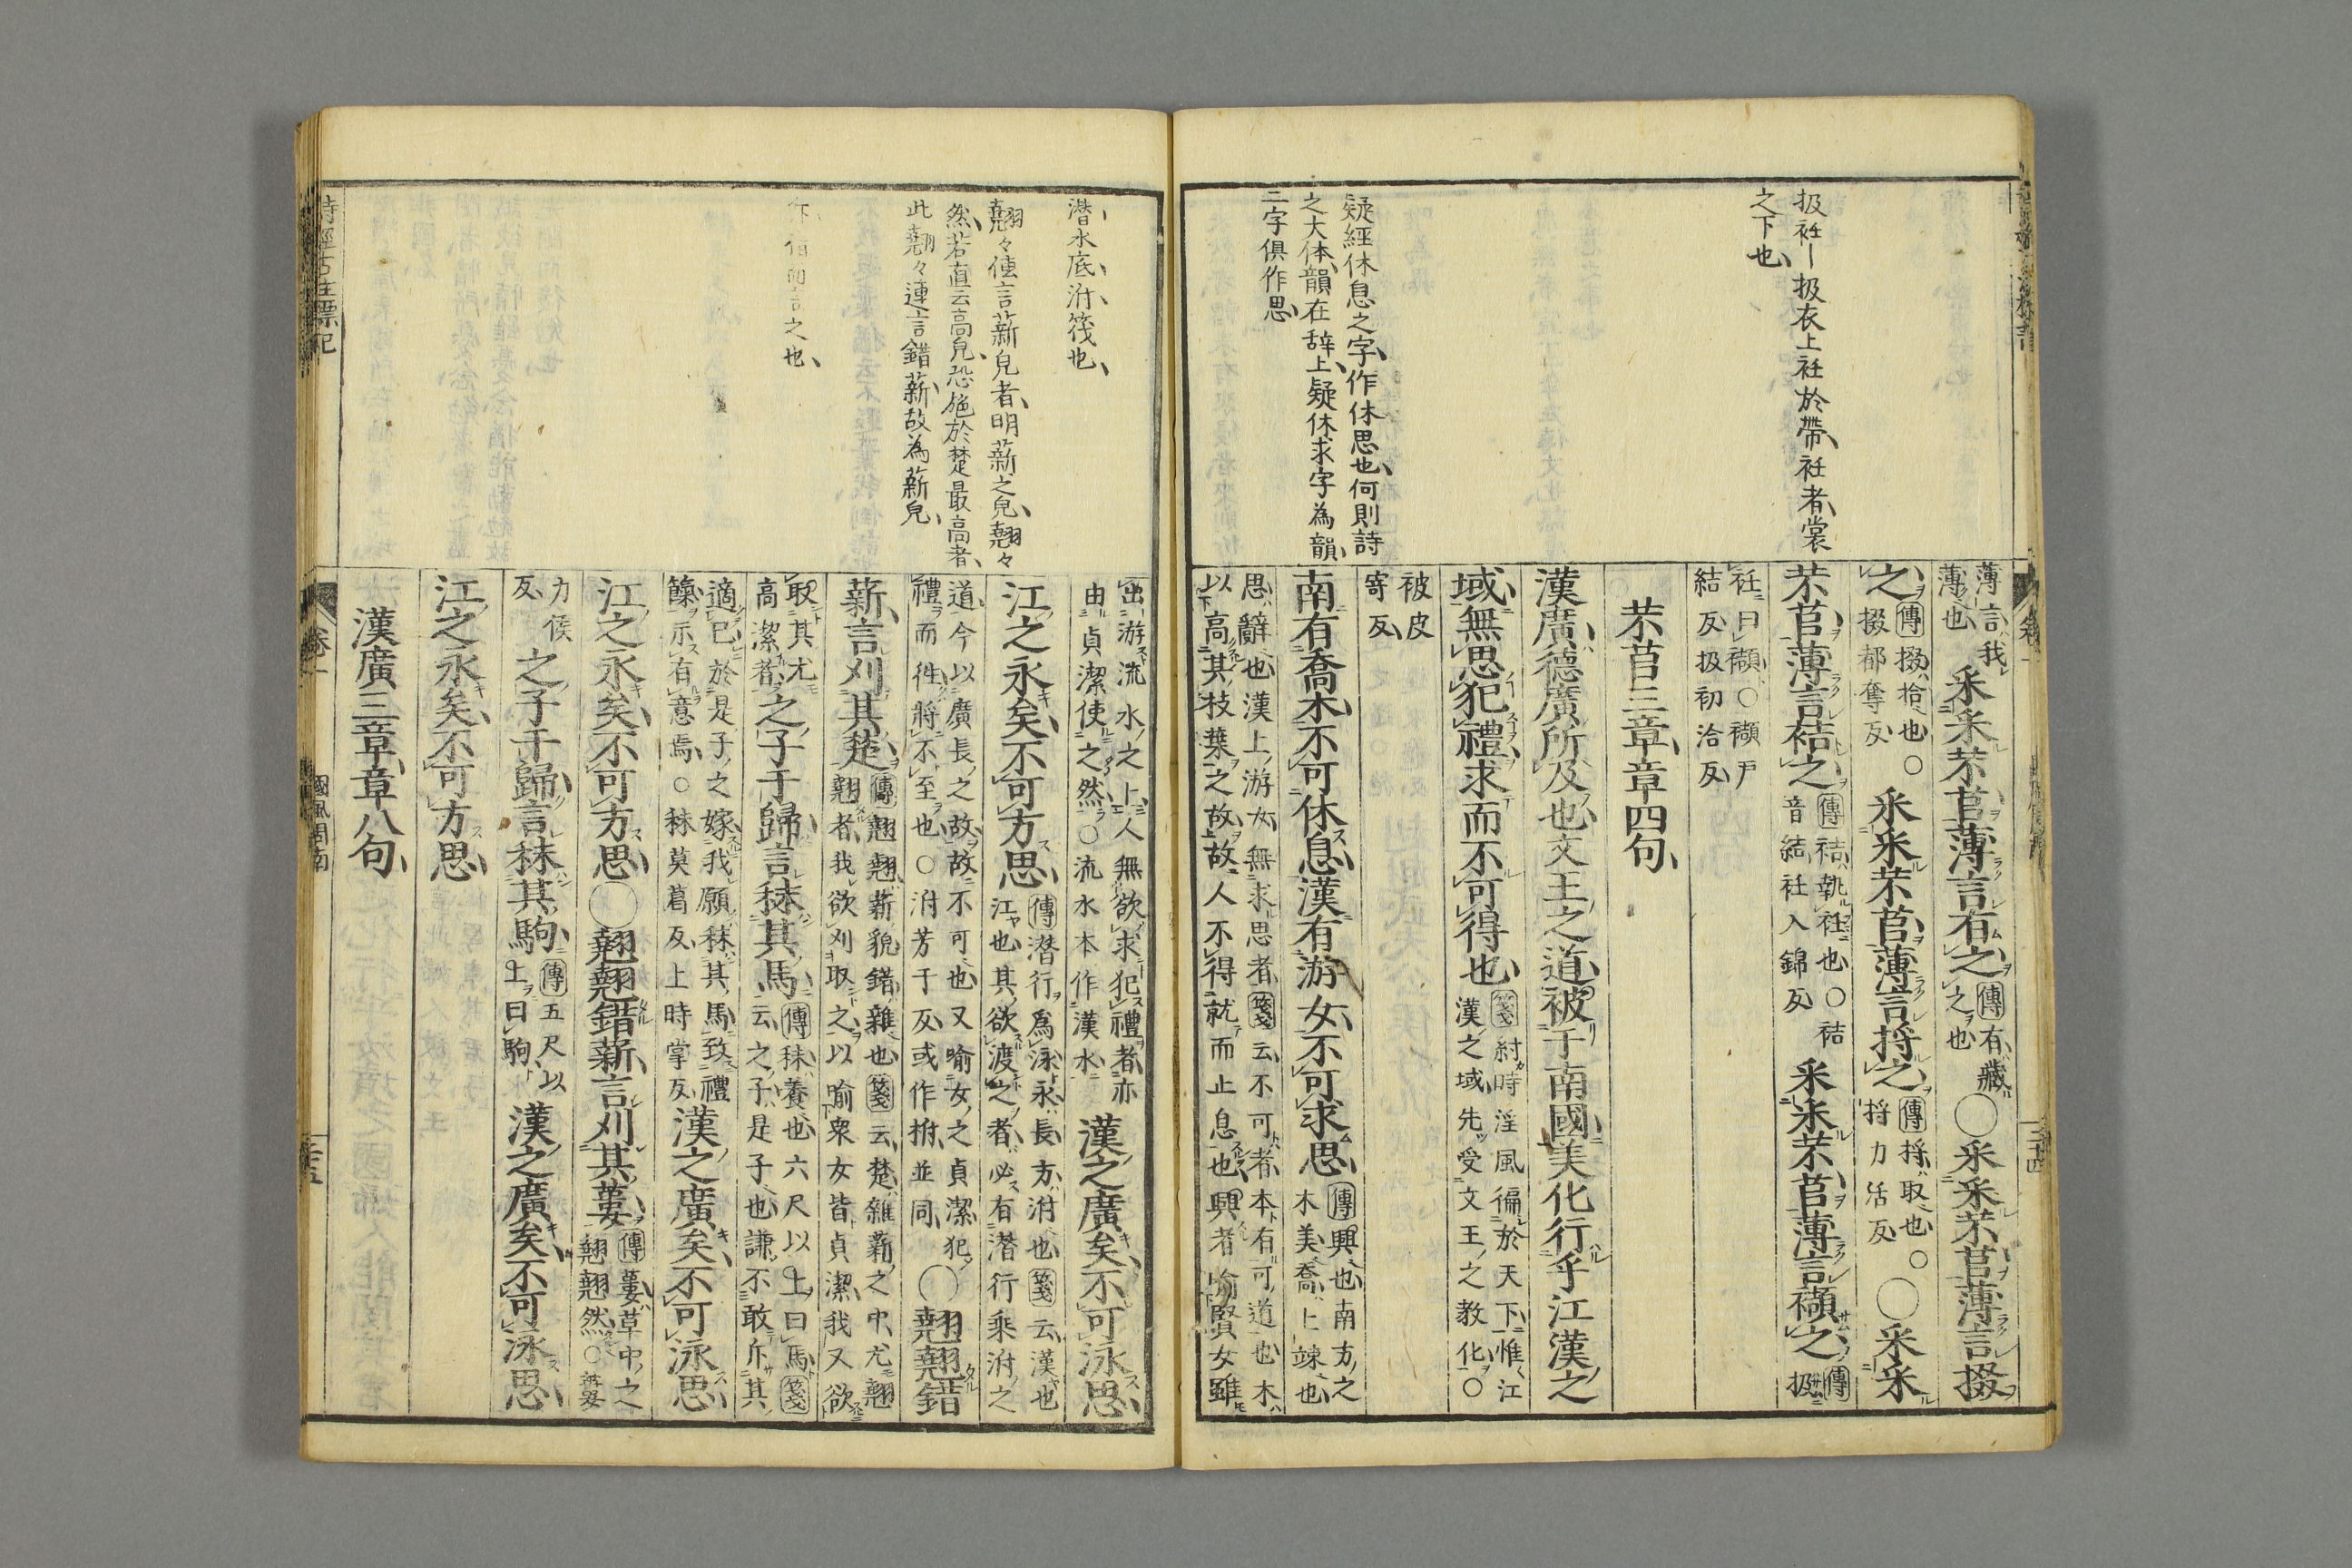 扱衽ー扱衣上衽於帶衽者裳
之下也
疑經休息之字作休思也何則詩
之大体韻在辞上疑休求字為韻
二字俱作思
薄言我
薄也
采采芣苢薄言有之
傳有藏
之也
○采采芣苢薄言掇
之
傳掇拾也○
掇都奪反
采采芣苢薄言捋之
傳捋取也。
捋力活反
○采采
芣苢薄言袺之
傳袺執衽也○袺
音結衽入錦反
采采芣苢薄言襭之
傳
扱
衽曰襭○襭戸
結反扱初洽反
芣苢三章章四句
漢廣德廣所及也文王之道被于南國美化行乎江漢之
域無思犯禮求而不可得也
箋紂時淫風徧於天下惟江
漢之域先受文王之教化○
被皮
寄反
南有喬木不可休息漢有游女不可求思
傳興也南方之
木美喬上竦也
思辭也漢上游女無求思者箋云不可者本有可道也木
以高其枝葉之故故人不得就而止息也興者喻賢女雖
潜水底泭筏也
翹々俥言薪皃者明薪之皃翹々
然若直云高皃恐施於楚最高者
此翹々連言錯薪故為薪皃
言之也
出游流水之上人無欲求犯禮者亦
由貞潔使之然○流水本作漢水
漢之廣矣不可泳思
江之永矣不可方思
傳潜行爲泳永長方泭也箋云漢也
江也其欲渡之者必有潜行乘泭之
道今以廣長之故故不可也又喻女之貞潔犯
禮而徃將不至也○泭芳于反或作桴並同
○翹翹錯
薪言刈其楚
傳翹翹薪貌錯雜也箋云楚雜薪之中尤翹
翹者我欲刈取之以喻衆女皆貞潔我又欲
取其尤
高潔者
之子于歸言秣其馬
傳秣養也六尺以上曰馬箋
云之子是子也謙不敢斥其
適已於是子之嫁我願秣其馬致禮
餼示有意焉○秣莫葛反上時掌反
漢之廣矣不可泳思
江之永矣不可方思○翹翹錯薪言刈其蔞
傳蔞草中之
翹翹然○蔞
力俟
反
之子于歸言秣其駒
傳五尺以
上曰駒
漢之廣矣不可泳思
江之永矣不可方思
漢廣三章章八句
詩經古註標記
卷一
國風周南
二十五